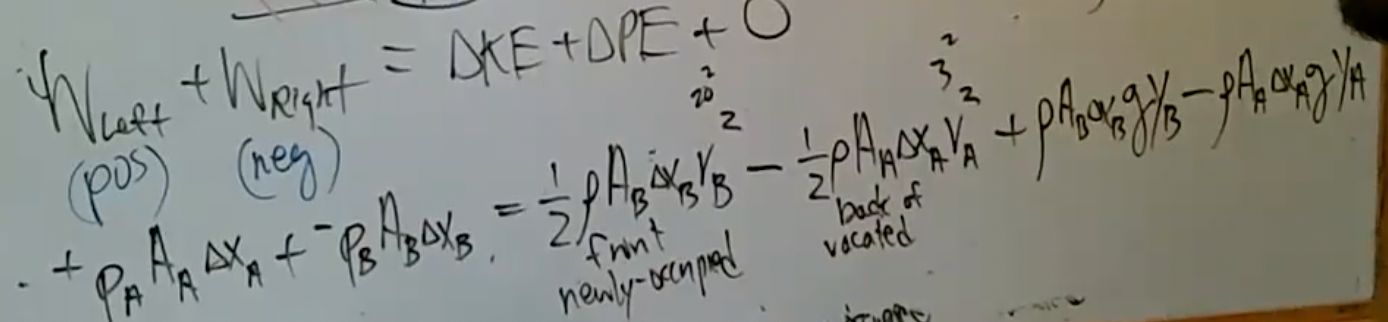 W_Left + W_Right = ΔKE + ΔPE + 0
(pos) (neg)
20² 3²
+ P_A A_A Δx_A + ⁻P_B A_B Δx_B = ½ρA_BΔx_B V_B² − ½ρA_AΔx_A V_A² + ρA_BΔx_B g y_B − ρA_AΔx_A g y_A
front back of
newly-occupied vacated